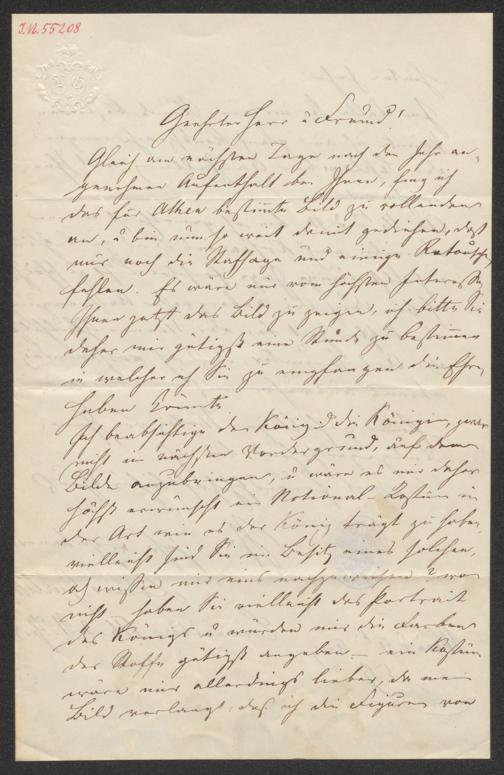 I.N. 55208
Geehrter Herr u Freund!
Gleich am nächsten Tage nach dem sehr an-
genehmen Aufenthalt bei Ihnen, fing ich
das für Athen bestimmte Bild zu vollenden
an, u bin nun so weit damit gediehen, daß
nur noch die Staffage und einige Retouschen
fehlen. Es wäre mir vom höchsten Interesse
Ihnen jetzt das Bild zu zeigen, ich bitte Sie
daher mir gütigst eine Stunde zu bestimmen
in welcher ich Sie zu empfangen die Ehre
haben könnte
Ich beabsichtige den König u die Königin, zwar
nicht im nächsten Vordergrund, auf dem
Bilde anzubringen, u wäre es mir daher
höchst erwünscht ein National-Kostüm in
der Art wie es der König trägt zu haben,
vielleicht sind Sie im Besitz eines solchen,
od wissen mir eins nachzuweisen? wo
nicht, haben Sie vielleicht das Portrait
des Königs u würden mir die Farben
der Stoffe gütigst angeben – ein Kostüm
wäre mir allerdings lieber, da mein
Bild verlangt, daß ich die Figuren von